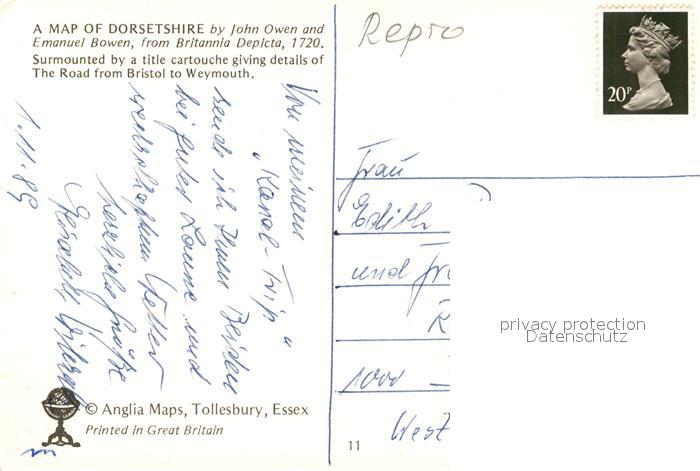 A MAP OF DORSETSHIRE by John Owen and
Emanuel Bowen, from Britannia Depicta, 1720.
Surmounted by a title cartouche giving details of
The Road from Bristol to Weymouth.
Repro
20P
1.11.89
Von meinem
„Kanal-Trip"
sende ich Ihnen Beiden
bei guter Laune und
Wetter
herzliche Grüße
Frau
Edith
und Fr
R
1000
West
privacy protection
Datenschutz
© Anglia Maps, Tollesbury, Essex
Printed in Great Britain
11